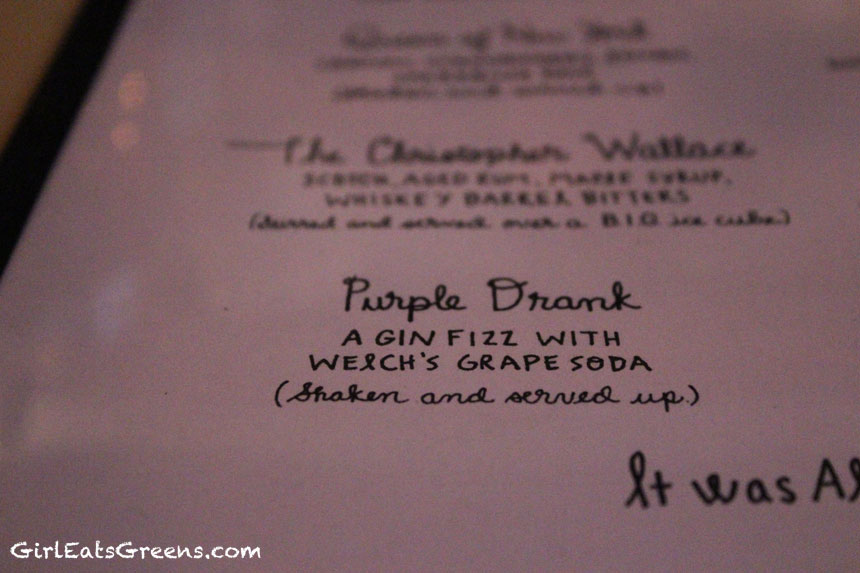 The Christopher Wallace
SCOTCH, AGED RUM, MAPLE SYRUP,
WHISKEY BARREL BITTERS
(stirred and served over a B.I.G. ice cube)
Purple Drank
A GIN FIZZ WITH
WELCH'S GRAPE SODA
(Shaken and served up.)
It was Al
GirlEatsGreens.com